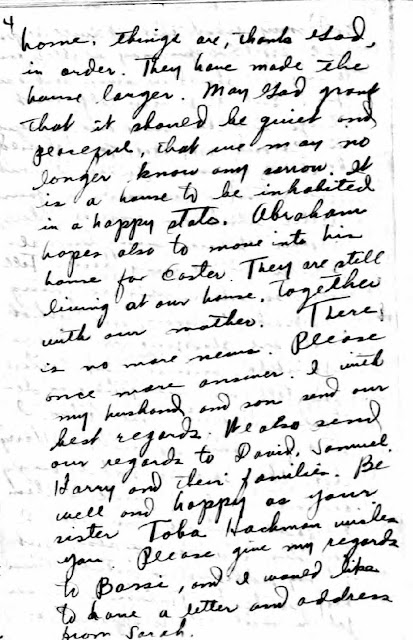 4
home. things are, thanks God,
in order. They have made the
house larger. May God grant
that it should be quiet and
peaceful, that we may no
longer know any sorrow. It
is a house to be inhabited
in a happy state. Abraham
hopes also to move into his
home for Easter. They are still
living at our house, together
with our mother. There
is no more news. Please
once more answer. I with
my husband and son send our
best regards. We also send
our regards to David, Samuel
Harry and their families. Be
well and happy as your
sister Toba Hackman wishes
you. Please give my regards
to Bassi, and I would like
to have a letter and address
from Sarah.